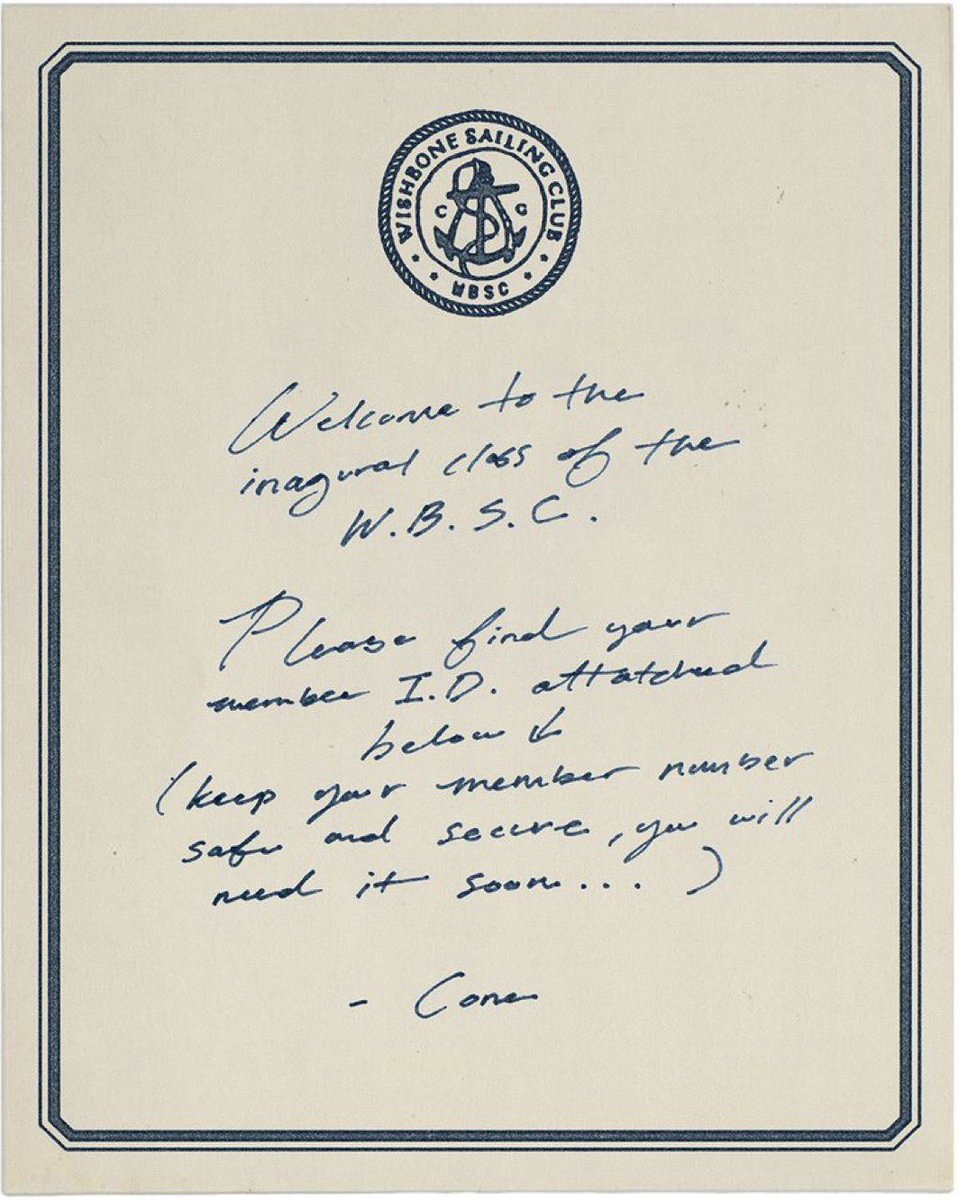 WISHBONE SAILING CLUB
C G
WBSC
Welcome to the
inagural class of the
W.B.S.C.
Please find your
member I.D. attatched
below ↓
(keep your member number
safe and secure, you will
need it soon... )
- Cone